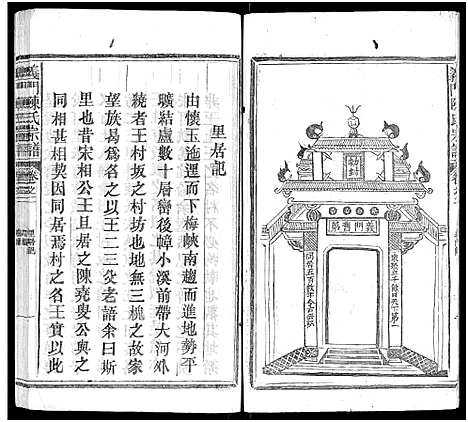 義門陳氏宗譜
敕封
義門舊第
里居記
由懷玉迤邐而下梅峽南趨而進地勢平
曠結廬數十層巒後幛小溪前帶大河外
繞者王村坂之村坊也地無三槐之故家
望族曷爲名之以王二三父老語余曰斯
里也昔宋相公王旦居之陳堯叟公與之
同相甚相契因同居焉村之名王實以此
義門陳氏宗譜
卷之
里居記